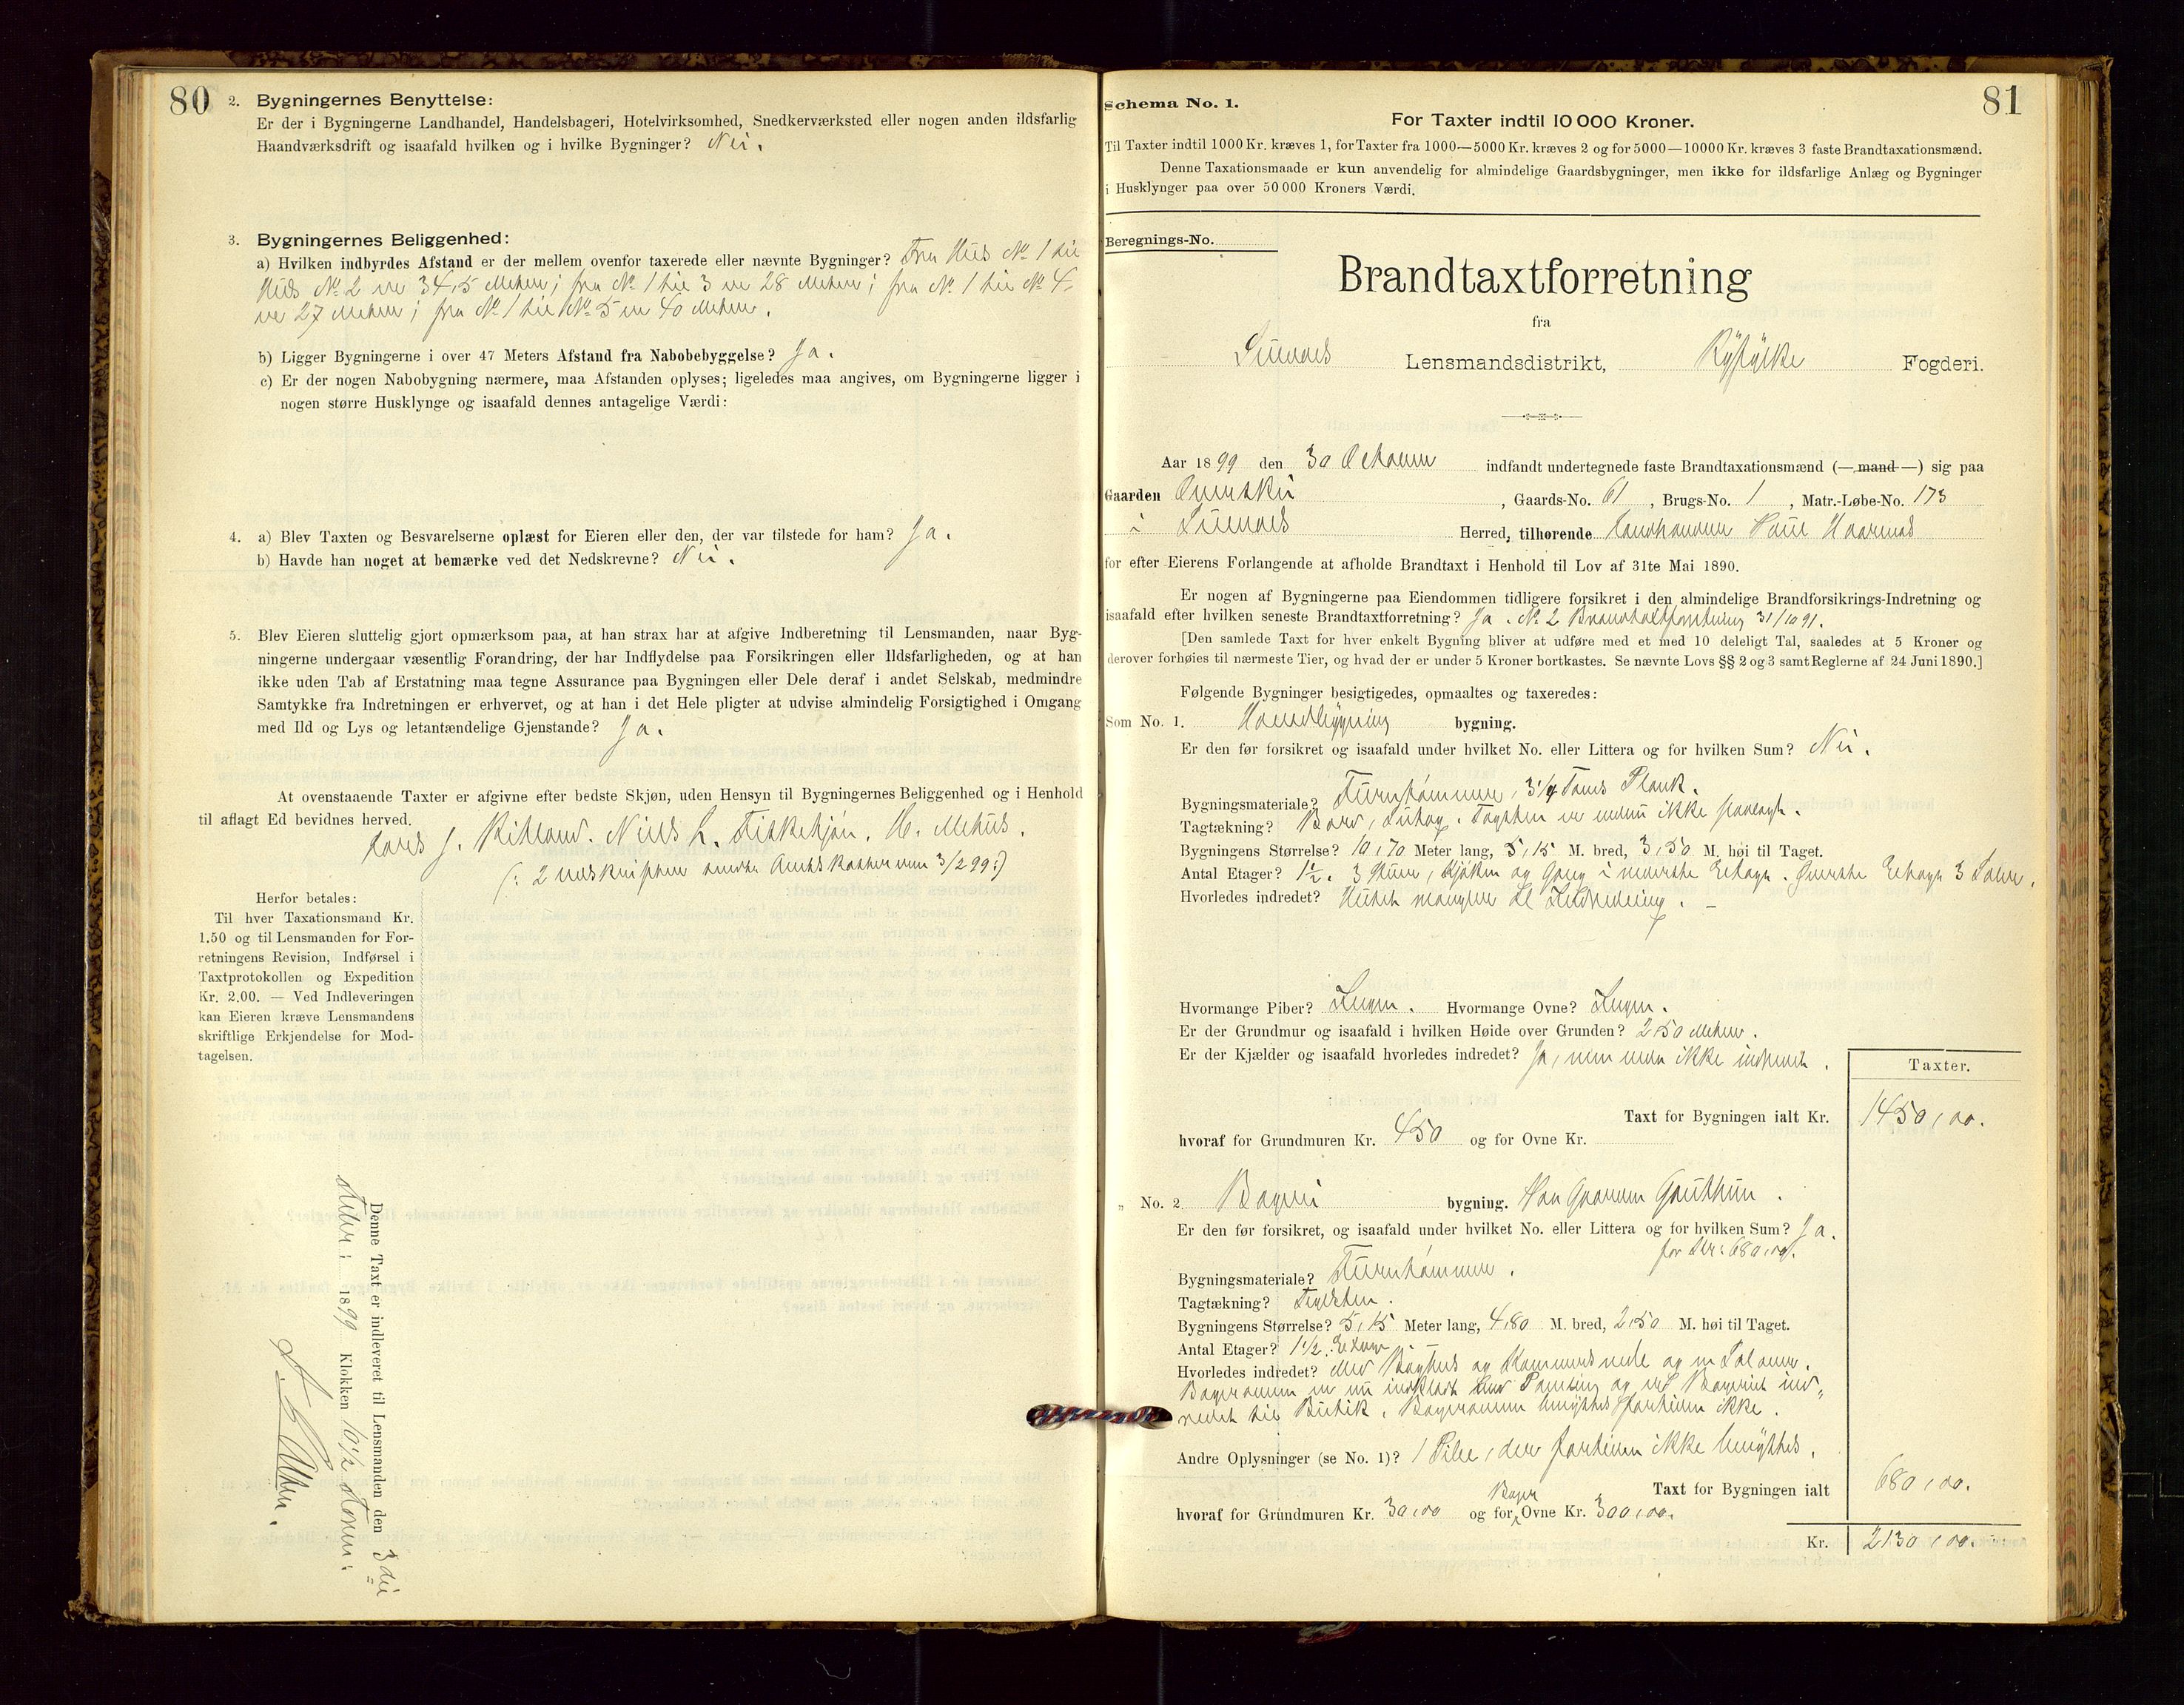 80
2. Bygningernes Benyttelse:
Er der i Bygningerne Landhandel, Handelsbageri, Hotelvirksomhed, Snedkerværksted eller nogen anden ildsfarlig
Haandværksdrift og isaafald hvilken og i hvilke Bygninger? Nei.
3. Bygningernes Beliggenhed:
a) Hvilken indbyrdes Afstand er der mellem ovenfor taxerede eller nævnte Bygninger? Fra Hus No 1 til
Hus No 2 er 34,5 Meter; fra No 1 til 3 er 28 Meter; fra No 1 til No 4.
er 27 Meter; fra No 1 til No 5 er 40 Meter.
b) Ligger Bygningerne i over 47 Meters Afstand fra Nabobebyggelse? Ja.
c) Er der nogen Nabobygning nærmere, maa Afstanden oplyses; ligeledes maa angives, om Bygningerne ligger i
nogen større Husklynge og isaafald dennes antagelige Værdi:
4. a) Blev Taxten og Besvarelserne oplæst for Eieren eller den, der var tilstede for ham? Ja.
b) Havde han noget at bemærke ved det Nedskrevne? Nei.
5. Blev Eieren sluttelig gjort opmærksom paa, at han strax har at afgive Indberetning til Lensmanden, naar Byg-
ningerne undergaar væsentlig Forandring, der har Indflydelse paa Forsikringen eller Ildsfarligheden, og at han
ikke uden Tab af Erstatning maa tegne Assurance paa Bygningen eller Dele deraf i andet Selskab, medmindre
Samtykke fra Indretningen er erhvervet, og at han i det Hele pligter at udvise almindelig Forsigtighed i Omgang
med Ild og Lys og letantændelige Gjenstande? Ja.
At ovenstaaende Taxter er afgivne efter bedste Skjøn, uden Hensyn til Bygningernes Beliggenhed og i Henhold
til aflagt Ed bevidnes herved.
Lars J. Riteland. Niels L. Fiskekjøn. H. Mehus.
(: 2 Udskrifter sendte Amtskasserer 3/2 99:)
Herfor betales:
Til hver Taxationsmand Kr.
1.50 og til Lensmanden for For-
retningens Revision, Indførsel i
Taxtprotokollen og Expedition
Kr. 2.00. — Ved Indleveringen
kan Eieren kræve Lensmandens
skriftlige Erkjendelse for Mod-
tagelsen.
Denne Taxt er indleveret til Lensmanden den 3die
1899 Klokken 10½ Form:
81
Schema No. 1.
For Taxter indtil 10 000 Kroner.
Til Taxter indtil 1000 Kr. kræves 1, for Taxter fra 1000—5000 Kr. kræves 2 og for 5000—10000 Kr. kræves 3 faste Brandtaxationsmænd.
Denne Taxationsmaade er kun anvendelig for almindelige Gaardsbygninger, men ikke for ildsfarlige Anlæg og Bygninger
i Husklynger paa over 50 000 Kroners Værdi.
Beregnings-No.
Brandtaxtforretning
fra
Suldals Lensmandsdistrikt, Ryfylke Fogderi.
Aar 1899 den 30 Oktober indfandt undertegnede faste Brandtaxationsmænd (—mand—) sig paa
Gaarden , Gaards-No. 61 , Brugs-No. 1 , Matr.-Løbe-No. 173
i Suldals Herred, tilhørende Landhandler
for efter Eierens Forlangende at afholde Brandtaxt i Henhold til Lov af 31te Mai 1890.
Er nogen af Bygningerne paa Eiendommen tidligere forsikret i den almindelige Brandforsikrings-Indretning og
isaafald efter hvilken seneste Brandtaxtforretning? Ja. No 2 Brandtaxtforretning 31/10 91.
[Den samlede Taxt for hver enkelt Bygning bliver at udføre med et med 10 deleligt Tal, saaledes at 5 Kroner og
derover forhøies til nærmeste Tier, og hvad der er under 5 Kroner bortkastes. Se nævnte Lovs §§ 2 og 3 samt Reglerne af 24 Juni 1890.]
Følgende Bygninger besigtigedes, opmaaltes og taxeredes:
Som No. 1. bygning.
Er den før forsikret og isaafald under hvilket No. eller Littera og for hvilken Sum? Nei.
Bygningsmateriale? Furutømmer, 3¼ Toms Plank.
Tagtækning? Bord, . Tagsten er endnu ikke paalagt.
Bygningens Størrelse? 10,70 Meter lang, 5,15 M. bred, 3,50 M. høi til Taget.
Antal Etager? 1½. 3 Stuer, Kjøkken og Gang i nederste Etage. Øverste Etage 3 Saler.
Hvorledes indredet? Huset mangler al Ildindretning.
Hvormange Piber? Ingen. Hvormange Ovne? Ingen.
Er der Grundmur og isaafald i hvilken Høide over Grunden? 2,50 Meter.
Er der Kjælder og isaafald hvorledes indredet? Ja, men endnu ikke indredet.
Taxter.
Taxt for Bygningen ialt Kr. 1450,00.
hvoraf for Grundmuren Kr. 450 og for Ovne Kr.
" No. 2. Bageri bygning. Paa Gaarden
Er den før forsikret, og isaafald under hvilket No. eller Littera og for hvilken Sum? Ja.
for Kr: 680,00.
Bygningsmateriale? Furutømmer.
Tagtækning? Tagsten.
Bygningens Størrelse? 5,15 Meter lang, 4,80 M. bred, 2,50 M. høi til Taget.
Antal Etager? 1½ Etage.
Hvorledes indredet? Med Baghus og Kammers nede og en Sal oven.
Bagerovnen er nu indklædt med Panling og ved Bageriet ind-
redet til Butik. Bagerovnen benyttes fortiden ikke.
Andre Oplysninger (se No. 1)? 1 Pibe, der fortiden ikke benyttes.
Taxt for Bygningen ialt 680,00.
hvoraf for Grundmuren Kr. 30,00 og for Bager Ovne Kr. 300,00.
Kr. 2130,00.